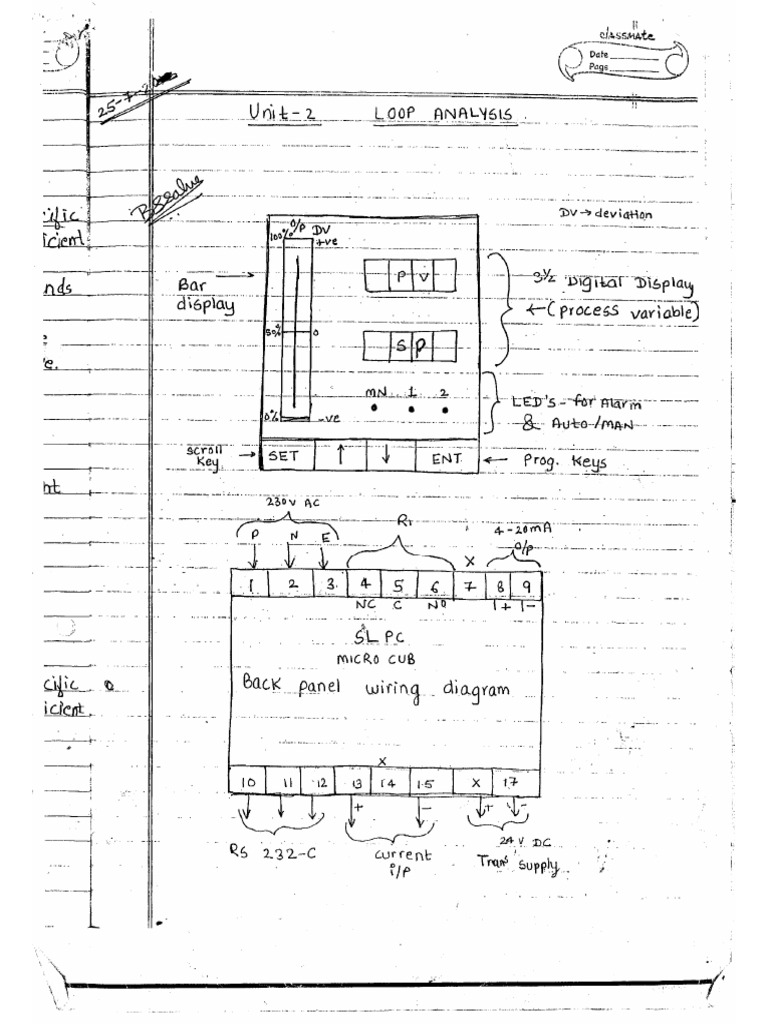 classmate
Date
Page
25-7-20
Unit-2 LOOP ANALYSIS
cific
icient
nds
ve.
nt
cific
icient
DV → deviation
O/P DV
100% +ve
Bar
display
50% 0
0% -ve
P V
S P
3½ Digital Display
← (process variable)
MN 1 2
LED's - for Alarm
& Auto/MAN
scroll
key
SET ↑ ↓ ENT
Prog. keys
230V AC
P N E
R1
X
4-20mA
O/P
1 2 3 4 5 6 7 8 9
NC C NO I+ I-
SLPC
MICRO CUB
Back panel wiring diagram
X
10 11 12 13 14 15 X 17
+ - + -
RS 232-C
current
i/p
24V DC
Trans supply